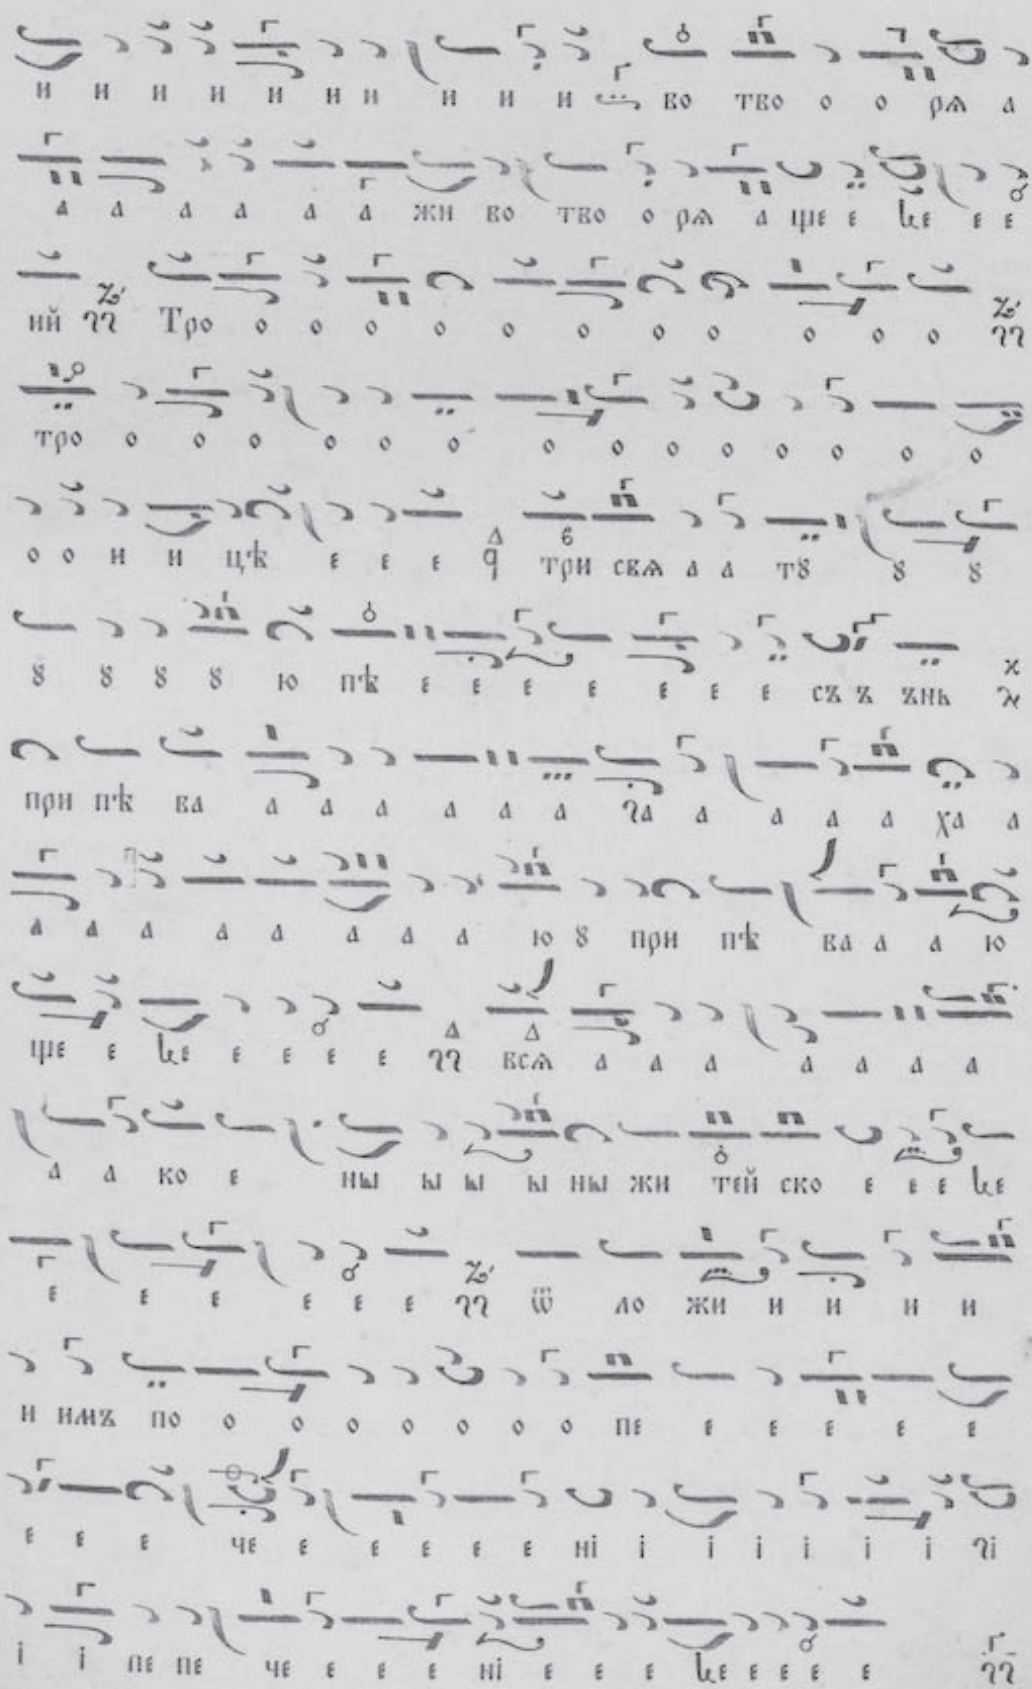 и и и и и и и и и и во тво о о рѧ а
а а а а а а жи во тво о рѧ а ще е е е е
ий Тро о о о о о о о о о о о
тро о о о о о о о о о о о о о о
о о и и цѣ е е е три свѧ а а тꙋ ꙋ ꙋ
ꙋ ꙋ ꙋ ꙋ ю пѣ е е е е е е е съ ъ ънь
при пѣ ва а а а а а а га а а а а ха а
а а а а а а а а ю ꙋ при пѣ ва а а ю
ще е е е е е е всѧ а а а а а а а
а а ко е ны ы ы ы ны жи тей ско е е е е
е е е е е е ѿ ло жи и и и и
и имъ по о о о о о о пе е е е е е
е е е че е е е е е ні і і і і і і гі
і і і пе пе че е е е ні е е е е е е е е